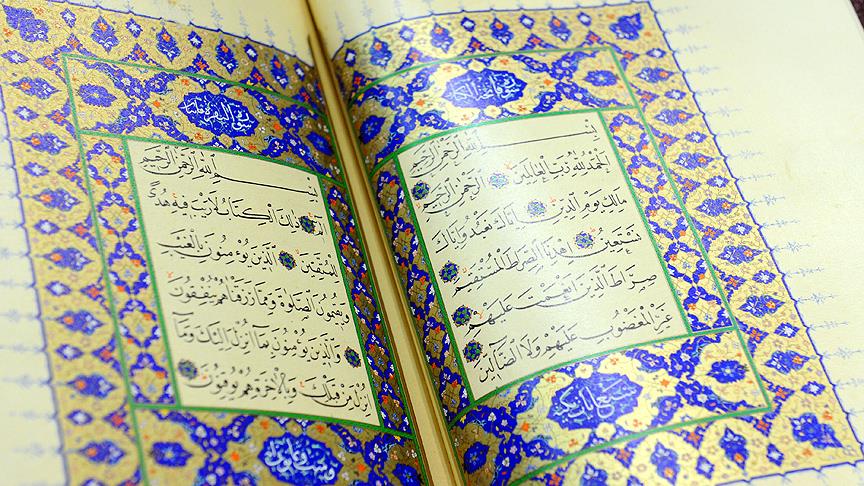 سورة فاتحة الكتاب
بِسْمِ اللّٰهِ الرَّحْمٰنِ الرَّحِيمِ
اَلْحَمْدُ لِلّٰهِ رَبِّ الْعَالَمِينَ الرَّحْمٰنِ الرَّحِيمِ
مَالِكِ يَوْمِ الدِّينِ اِيَّاكَ نَعْبُدُ وَاِيَّاكَ
نَسْتَعِينُ اِهْدِنَا الصِّرَاطَ الْمُسْتَقِيمَ
صِرَاطَ الَّذِينَ اَنْعَمْتَ عَلَيْهِمْ
غَيْرِ الْمَغْضُوبِ عَلَيْهِمْ وَلَا الضَّالِّينَ
سورة البقرة مائتان
بِسْمِ اللّٰهِ الرَّحْمٰنِ الرَّحِيمِ
الٓمٓ ذٰلِكَ الْكِتَابُ لَا رَيْبَ فِيهِ هُدًى
لِلْمُتَّقِينَ اَلَّذِينَ يُؤْمِنُونَ بِالْغَيْبِ
وَيُقِيمُونَ الصَّلٰوةَ وَمِمَّا رَزَقْنَاهُمْ يُنْفِقُونَ
وَالَّذِينَ يُؤْمِنُونَ بِمَا اُنْزِلَ اِلَيْكَ وَمَا
اُنْزِلَ مِنْ قَبْلِكَ وَبِالْاٰخِرَةِ هُمْ يُوقِنُونَ